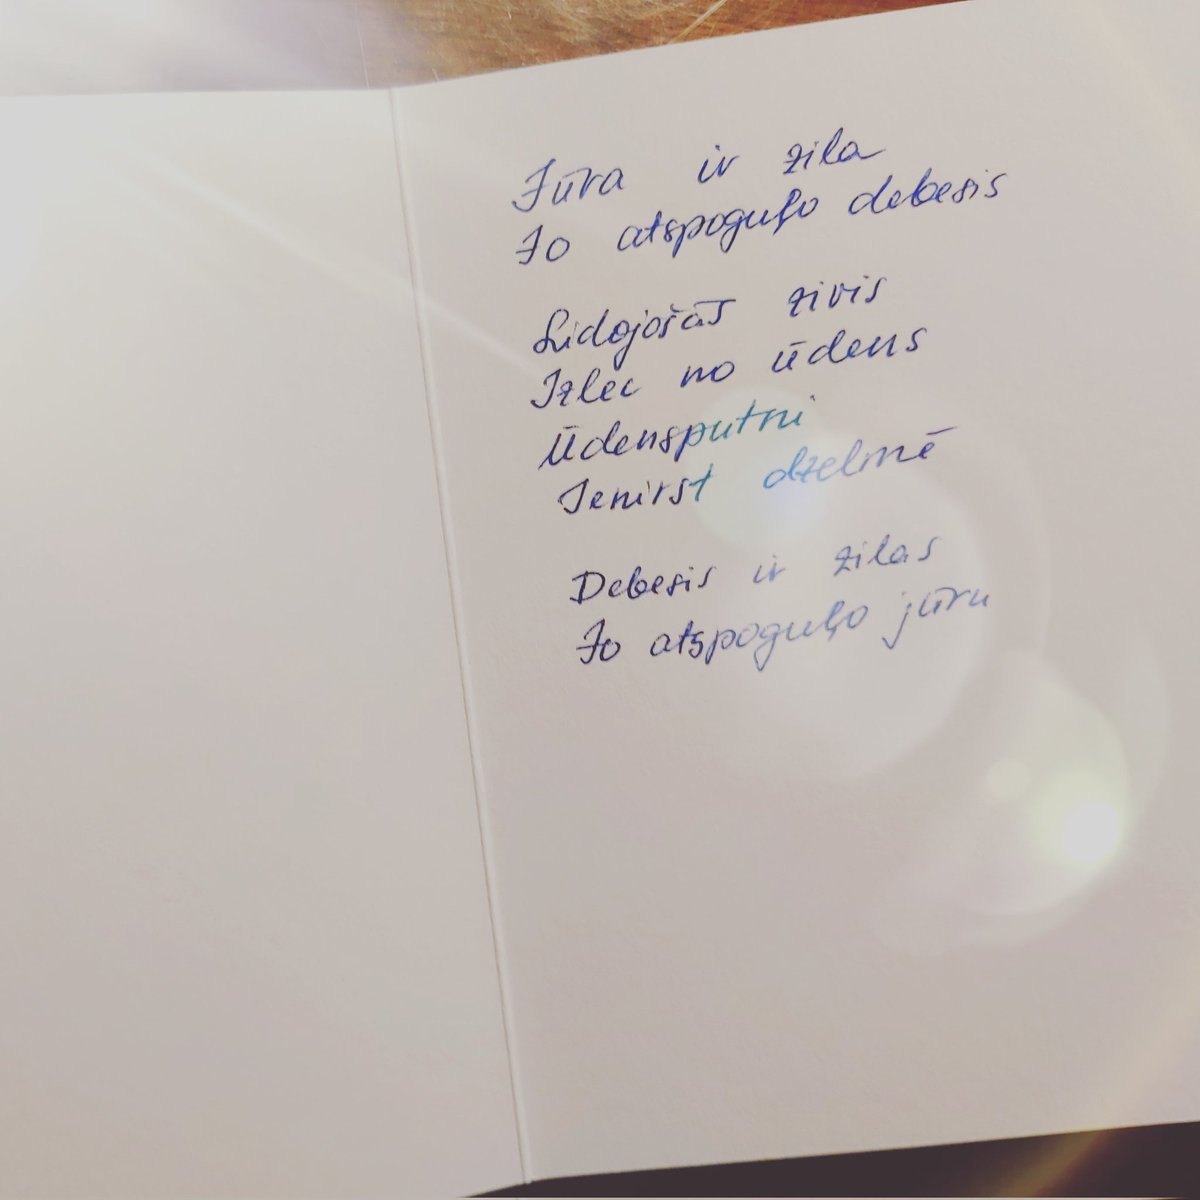 Jūra ir zila
Jo atspoguļo debesis
Lidojošās zivis
Izlec no ūdens
Ūdensputni
Ienirst dzelmē
Debesis ir zilas
Jo atspoguļo jūru